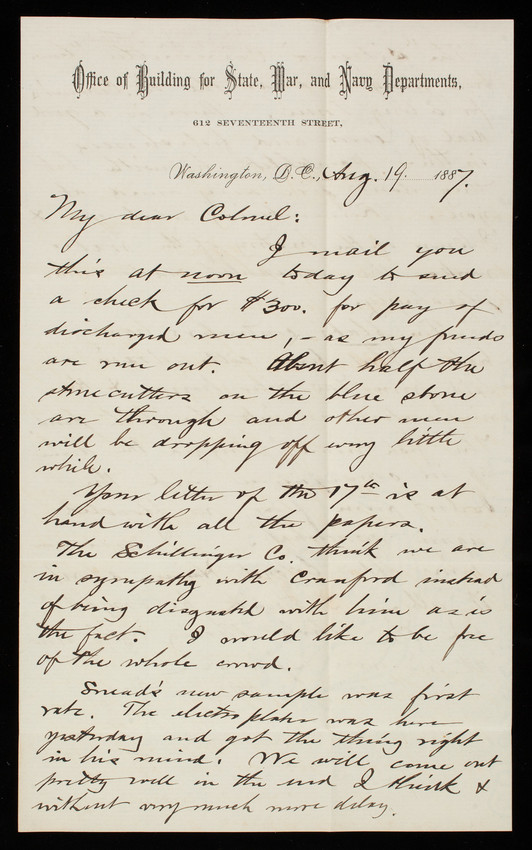 Office of Building for State, War, and Navy Departments,
612 SEVENTEENTH STREET,
Washington, D.C., Aug. 19. 1887.
My dear Colonel:
I mail you
this at noon today to send
a check for $300. for pay of
discharged men, – as my funds
are run out. About half the
stonecutters on the blue stone
are through and other men
will be dropping off every little
while.
Your letter of the 17th is at
hand with all the papers.
The Schillinger Co. think we are
in sympathy with Cranford instead
of being disgusted with him as is
the fact. I would like to be free
of the whole crowd.
Snead's new sample was first
rate. The electroplater was here
yesterday and got the thing right
in his mind. We will come out
pretty well in the end I think &
without very much more delay.